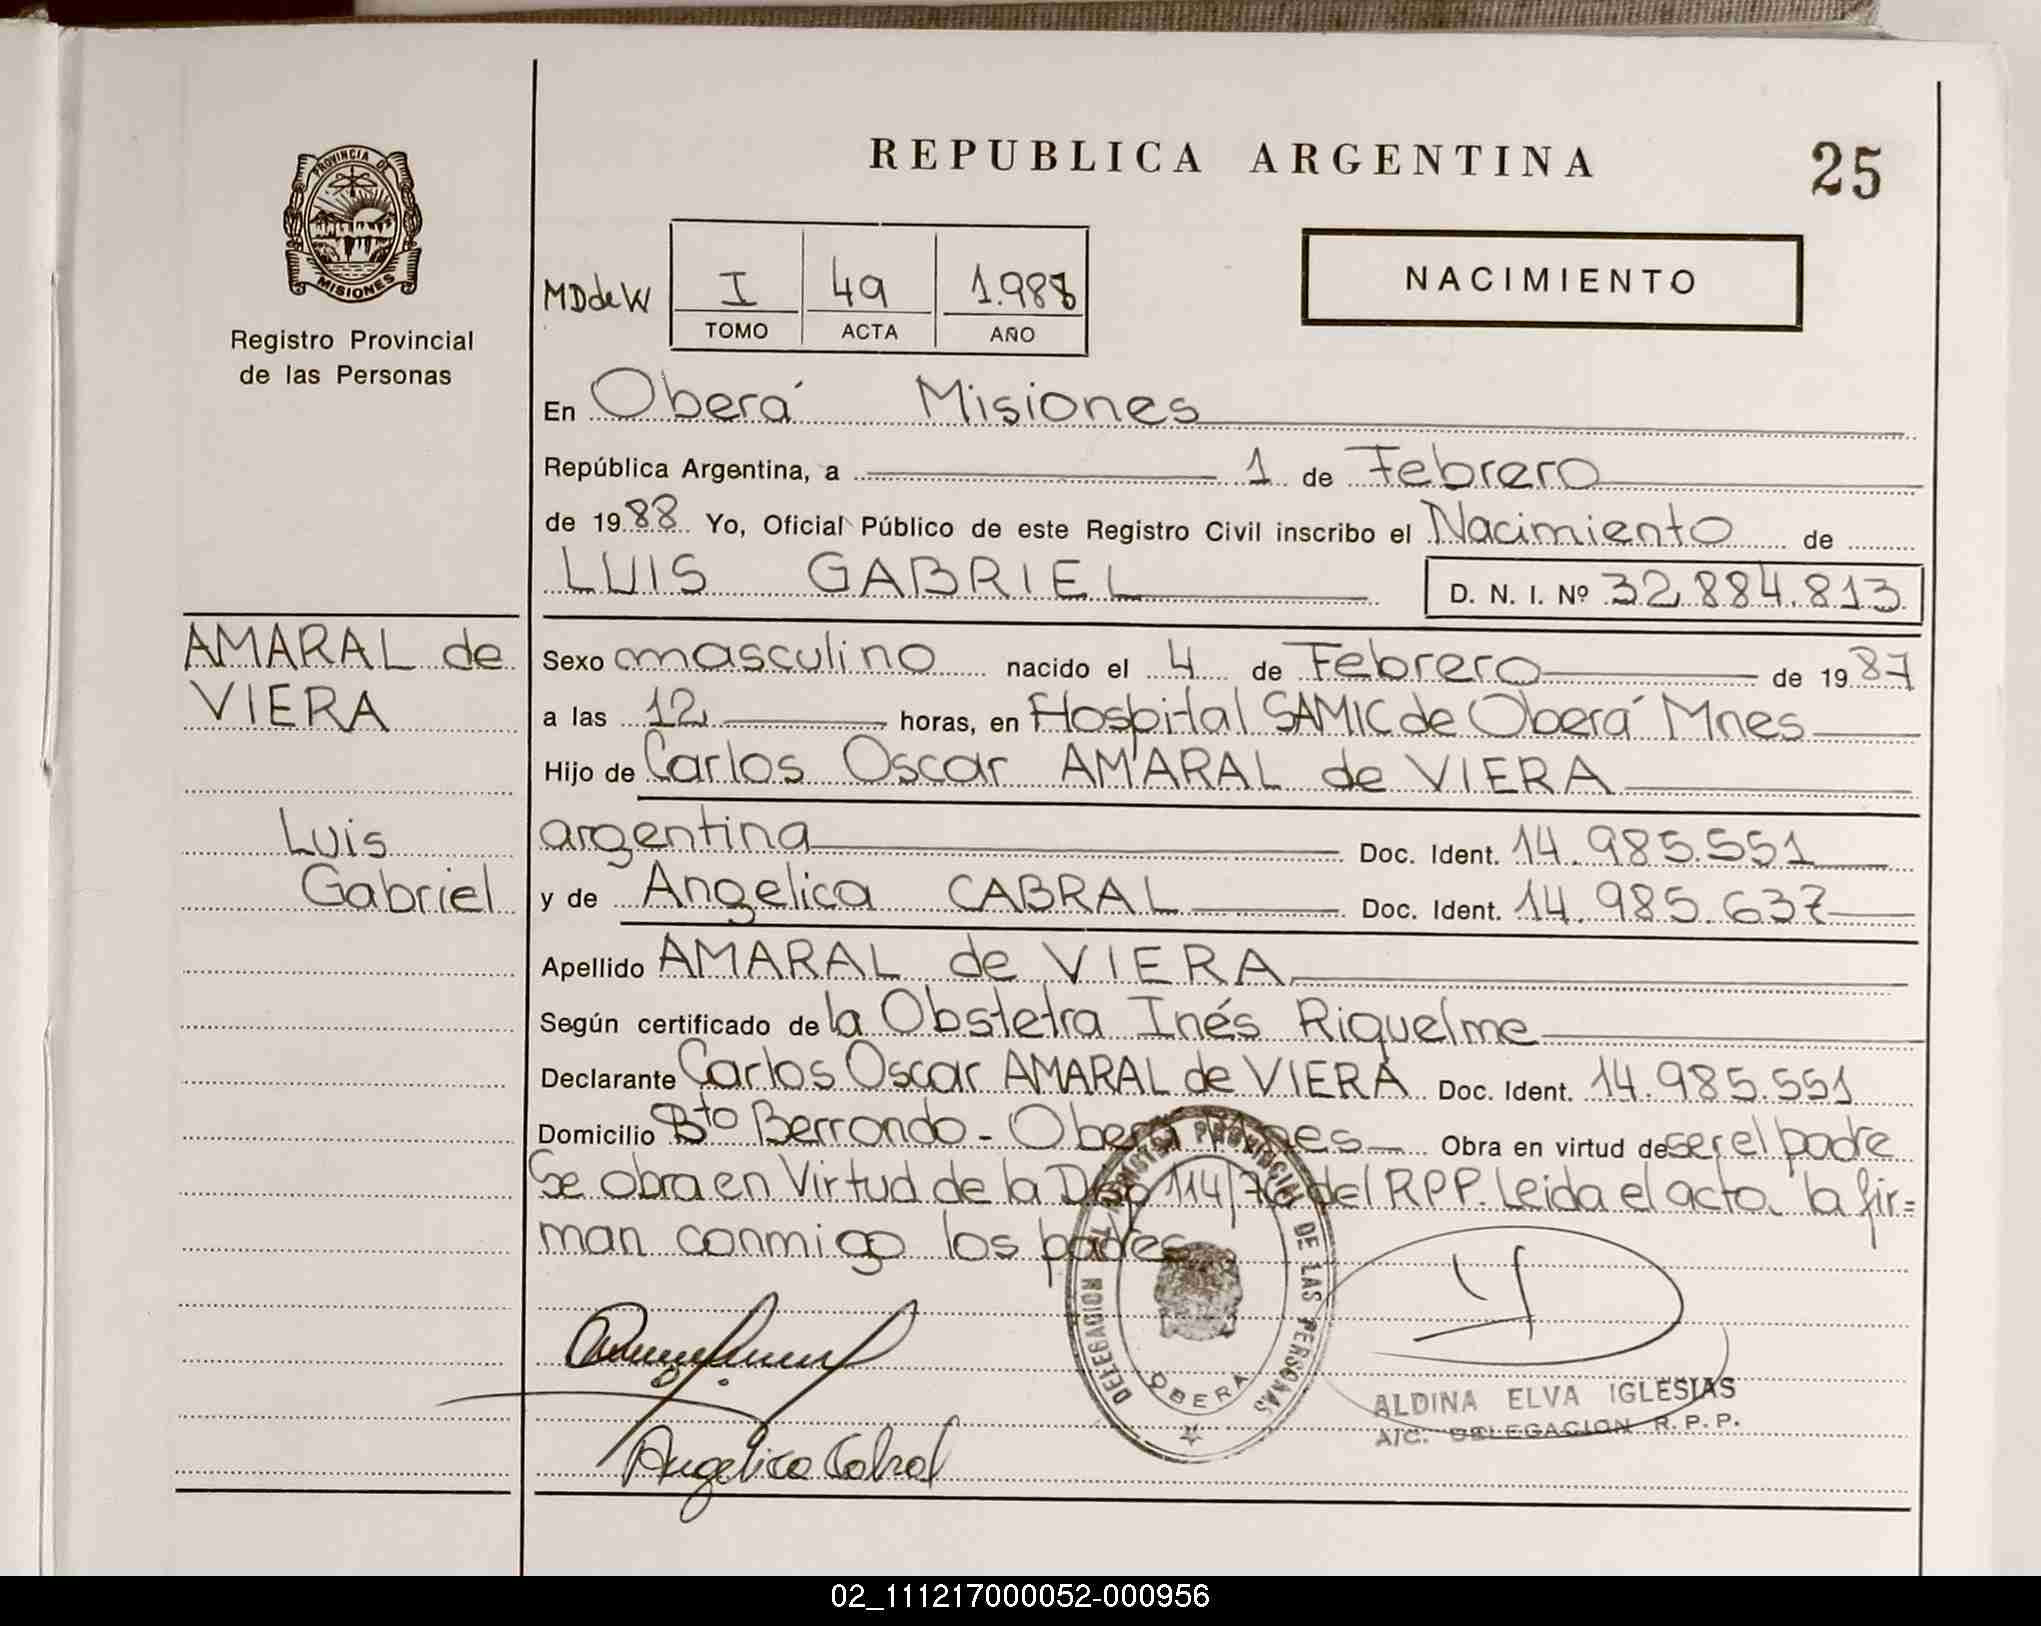 REPUBLICA ARGENTINA
25
PROVINCIA DE
MISIONES
Registro Provincial
de las Personas
MDdeW
I
49
1.988
TOMO
ACTA
AÑO
NACIMIENTO
En Oberá Misiones
República Argentina, a 1 de Febrero
de 1988 Yo, Oficial Público de este Registro Civil inscribo el Nacimiento de
LUIS GABRIEL
D. N. I. Nº 32.884.813
AMARAL de
VIERA
Luis
Gabriel
Sexo masculino nacido el 4 de Febrero de 1987
a las 12 horas, en Hospital SAMIC de Oberá Mnes
Hijo de Carlos Oscar AMARAL de VIERA
argentina Doc. Ident. 14.985.551
y de Angelica CABRAL Doc. Ident. 14.985.637
Apellido AMARAL de VIERA
Según certificado de la Obstetra Inés Riquelme
Declarante Carlos Oscar AMARAL de VIERA Doc. Ident. 14.985.551
Domicilio Bto Berrondo - Oberá Mnes Obra en virtud de ser el padre
Se obra en Virtud de la Disp 114/76 del RPP. Leida el acto. la fir=
man conmigo los padres
DELEGACION REGISTRO PROVINCIAL DE LAS PERSONAS
OBERA
Angelica Cabral
ALDINA ELVA IGLESIAS
A/C. DELEGACION R.P.P.
02_111217000052-000956